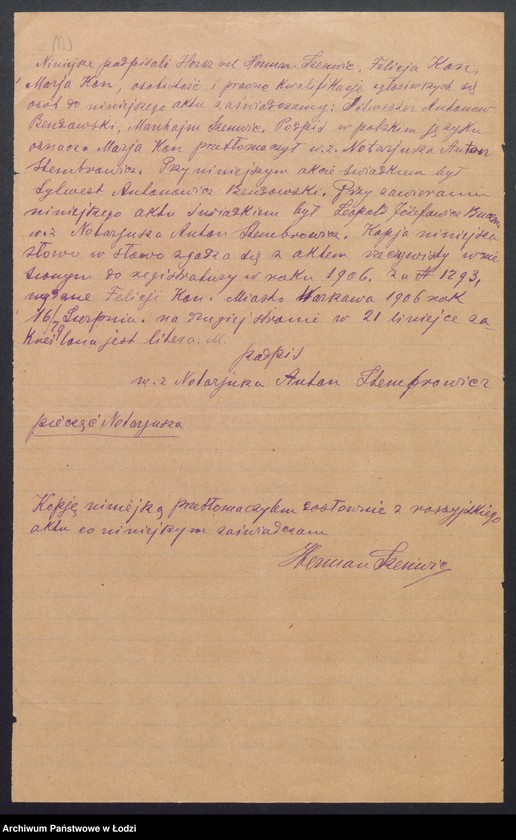 Niniejsze podpisali Hersz vel Herman Szeniwic, Felicja Kon,
Marja Kon, osobistość i prawną kwalifikację zgłosiwszych się
osób do niniejszego aktu zaświadczamy: Silwester Antonow
Bendowski, Manhajm Szeniwic. Podpis w polskim języku
oznacza Marja Kon przetłomaczył w.z. Notarjusza Anton
Stembrowicz. Przy niniejszym akcie świadkiem był
Sylwest Antonowicz Bendowski. Przy zawieraniu
niniejszego aktu świadkiem był Leopold Józefowicz
w.z Notarjusza Anton Stembrowicz. Kopja niniejsza
słowo w słowo zgadza się z aktem rzeczywisty wnie
sionym do registratury w roku 1906. za # 1293,
wydane Felicji Kon. Miasto Warszawa 1906 rok
16/ Sierpnia. na drugiej stronie w 21 liniejce za-
kreślona jest litera. M.
podpis
w.z Notarjusza Anton Stembrowicz
pieczęć Notarjusza
Kopję niniejszą przetłomaczyłem dosłownie z rossyjskiego
aktu co niniejszym zaświadczam
Herman Szeniwic
Archiwum Państwowe w Łodzi